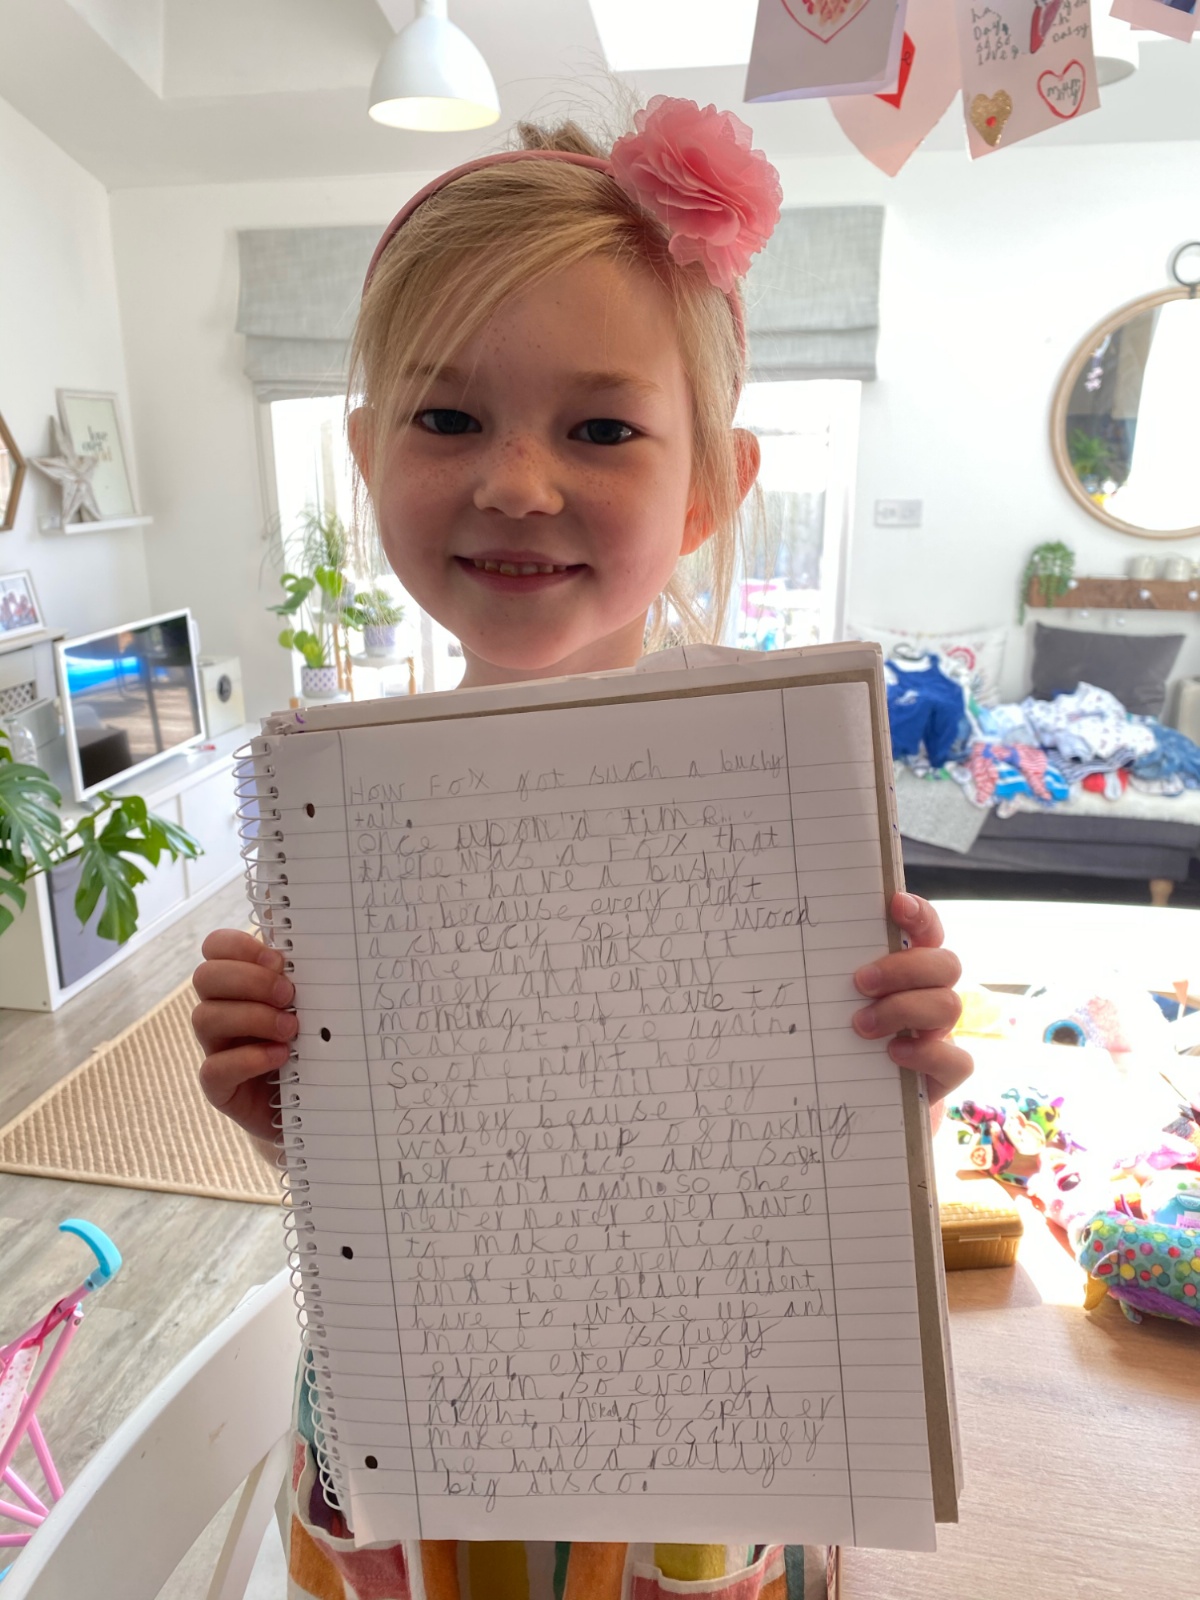 love
ha
Day
love
Daisy
mummy
How Fox got such a bushy
tail.
Once upon a time
there was a Fox that
dident have a bushy
tail because every night
a cheecy spider wood
come and make it
scrugy and every
morning her have to
make it nice again.
So one night he
left his tail very
scrugy beause he
was fed up of making
her tail nice and soft
again and again. so she
never never ever have
to make it nice
ever ever ever again
and the spider dident
have to wake up and
make it scrugy
ever ever ever
again so every
night instead of spider
makeing it scrugy
he had a really
big disco.